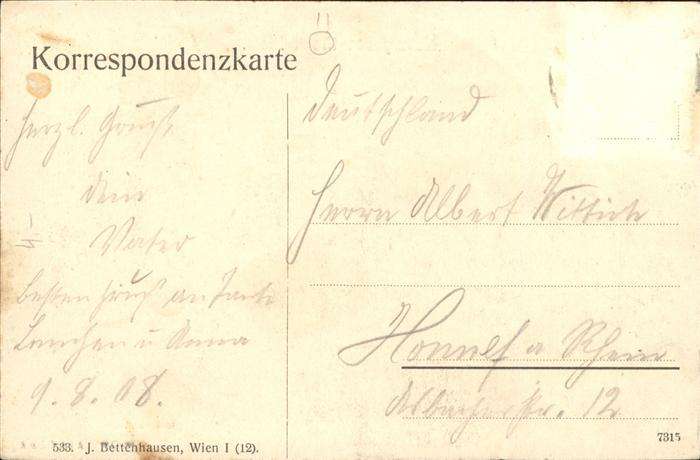 Korrespondenzkarte
Herzl. Gruß
dein
Vater
besten Gruß an Tante
Lenchen u Anna
9. 8. 08.
Deutschland
Herrn Albert Wittich
Honnef a Rhein
12
4-
533. J. Bettenhausen, Wien I (12).
7315